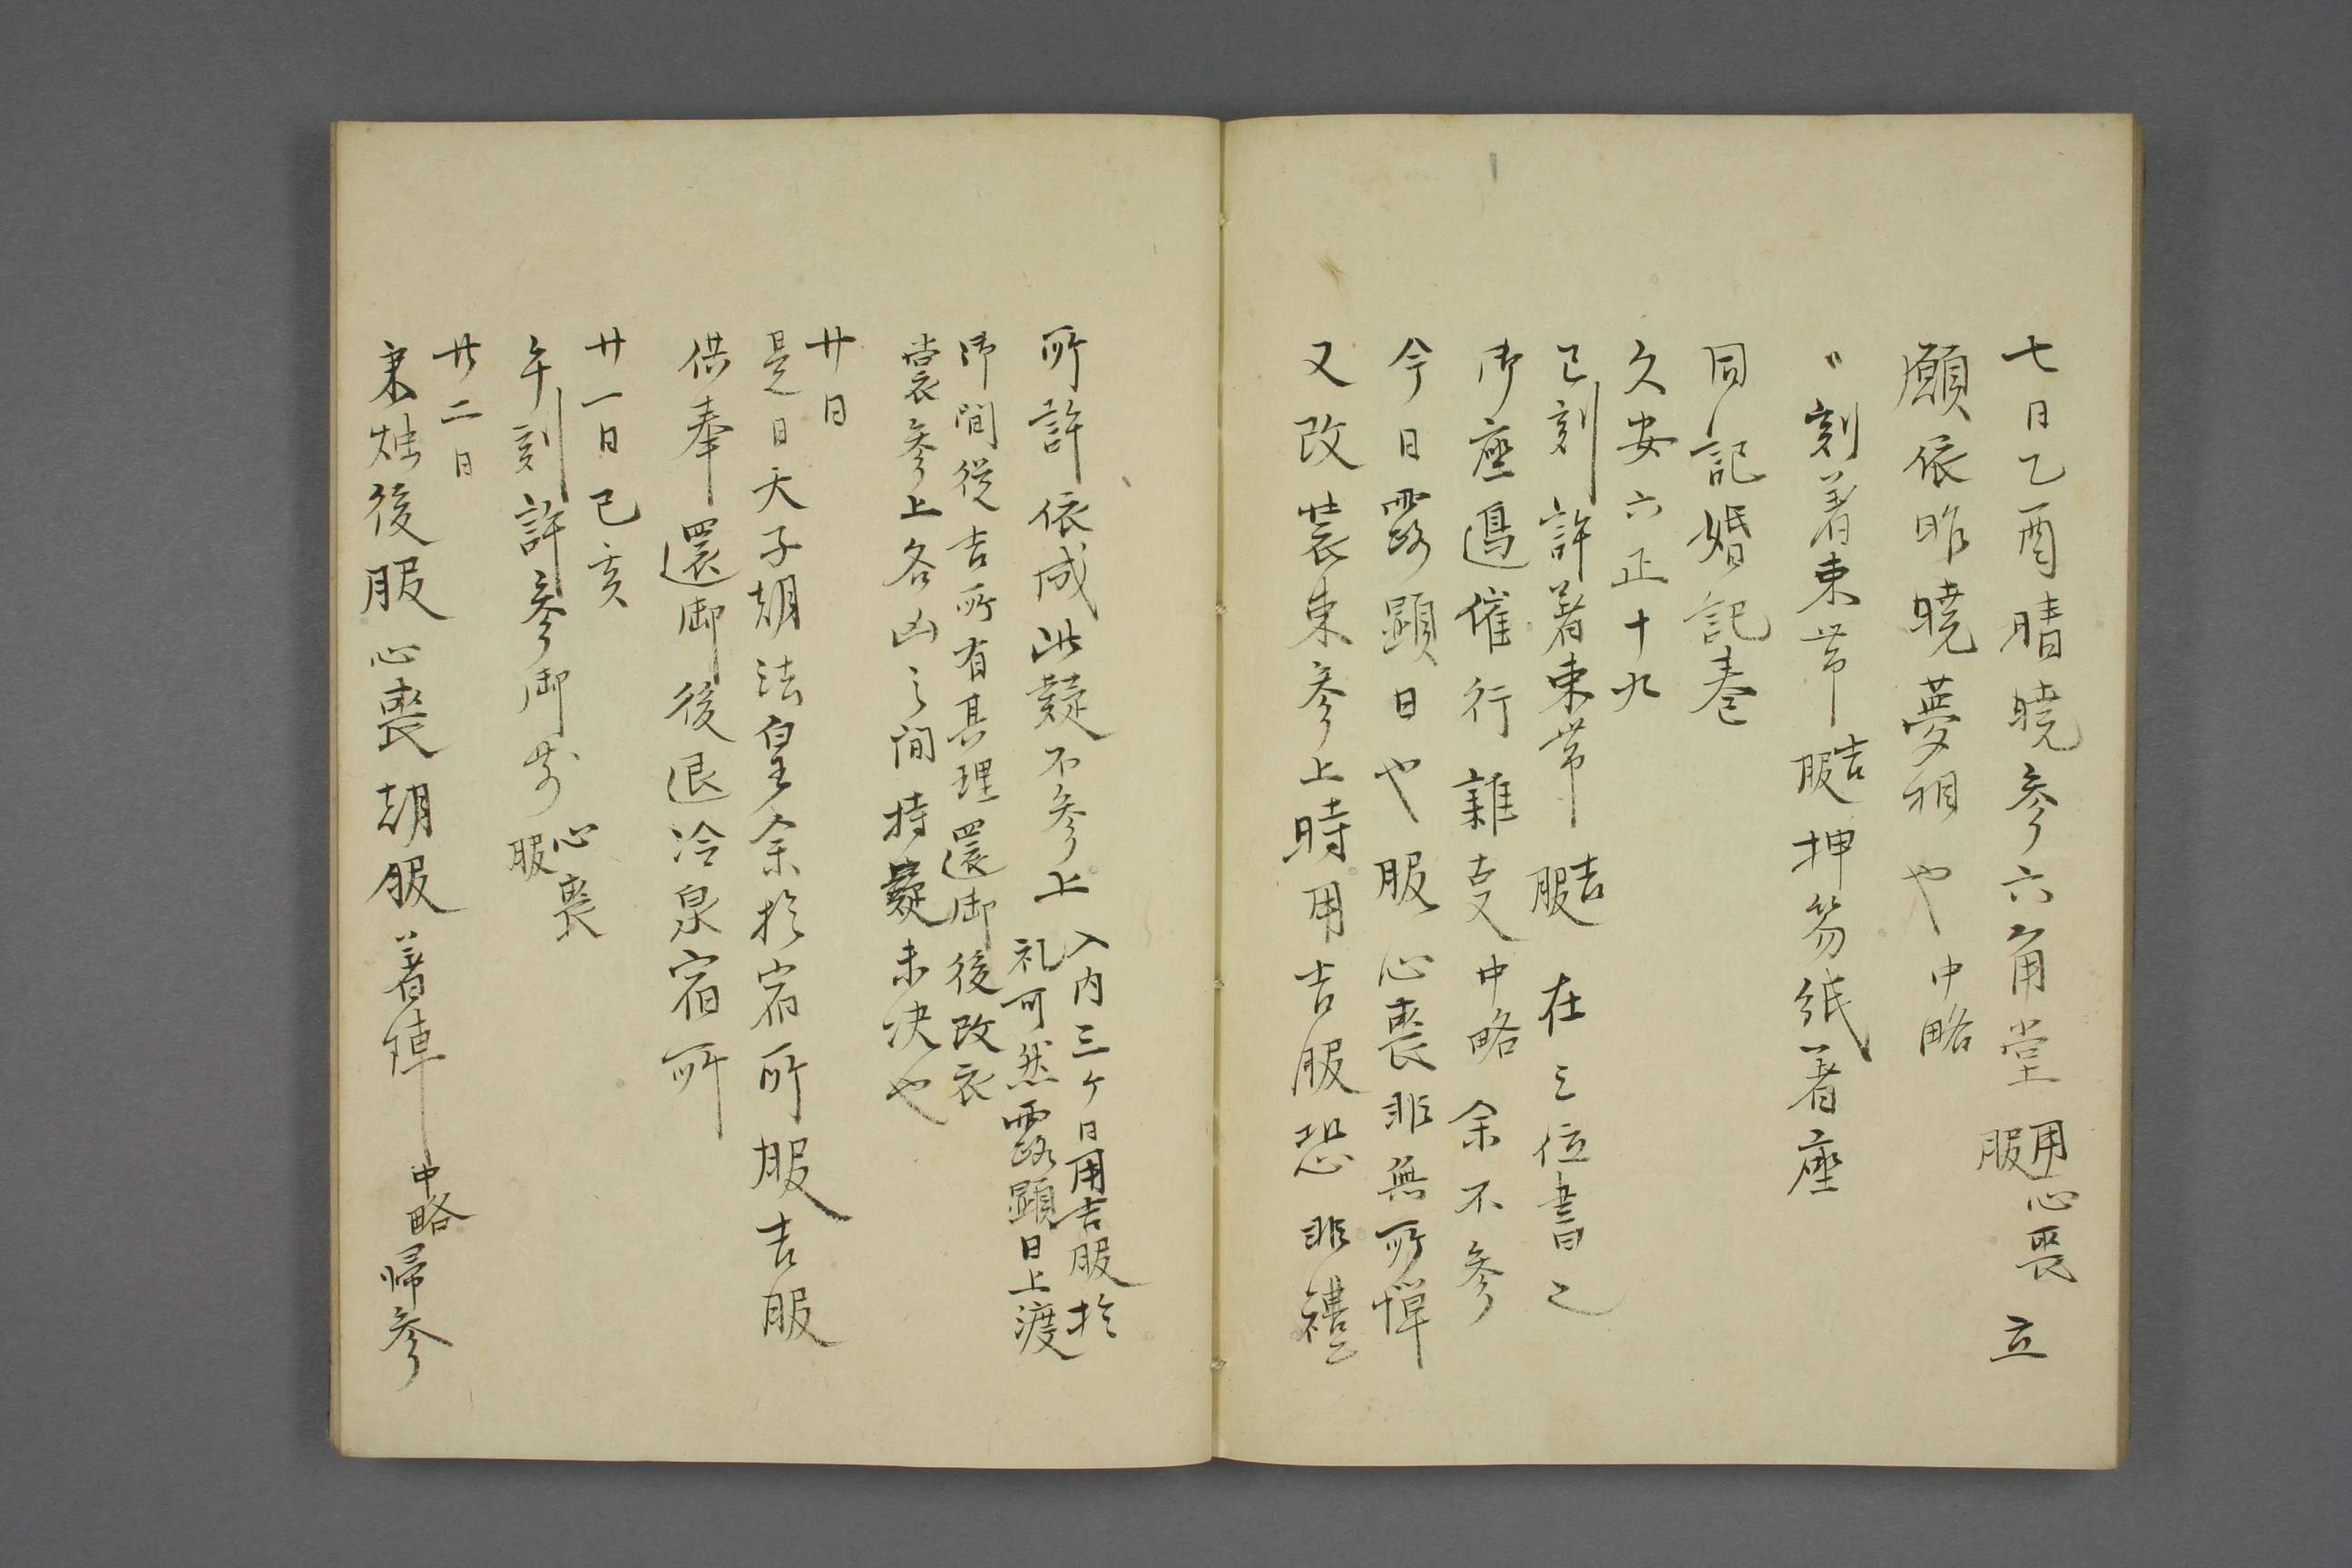 七日乙酉晴暁参六角堂用心喪服立
願依昨暁夢相也中略
〃刻着束帯吉服押笏紙着座
同記婚記巻
久安六正十九
巳刻許著束帯吉服在三位書之
御座邊催行雑事中略余不参
今日露顕日也服心喪非無所憚
又改装束参上時用吉服恐非禮
所許依成此疑不参上入内三ケ日用吉服於
礼可然露顕日上渡
御間従吉所有其理還御後改衣
裳参上各凶之間持疑未决也
廿日
是日天子朝法皇余於宿所服吉服
供奉還御後退冷泉宿所
廿一日己亥
午刻許参御前心喪服
廿二日
秉燭後服心喪朝服著陣中略歸参